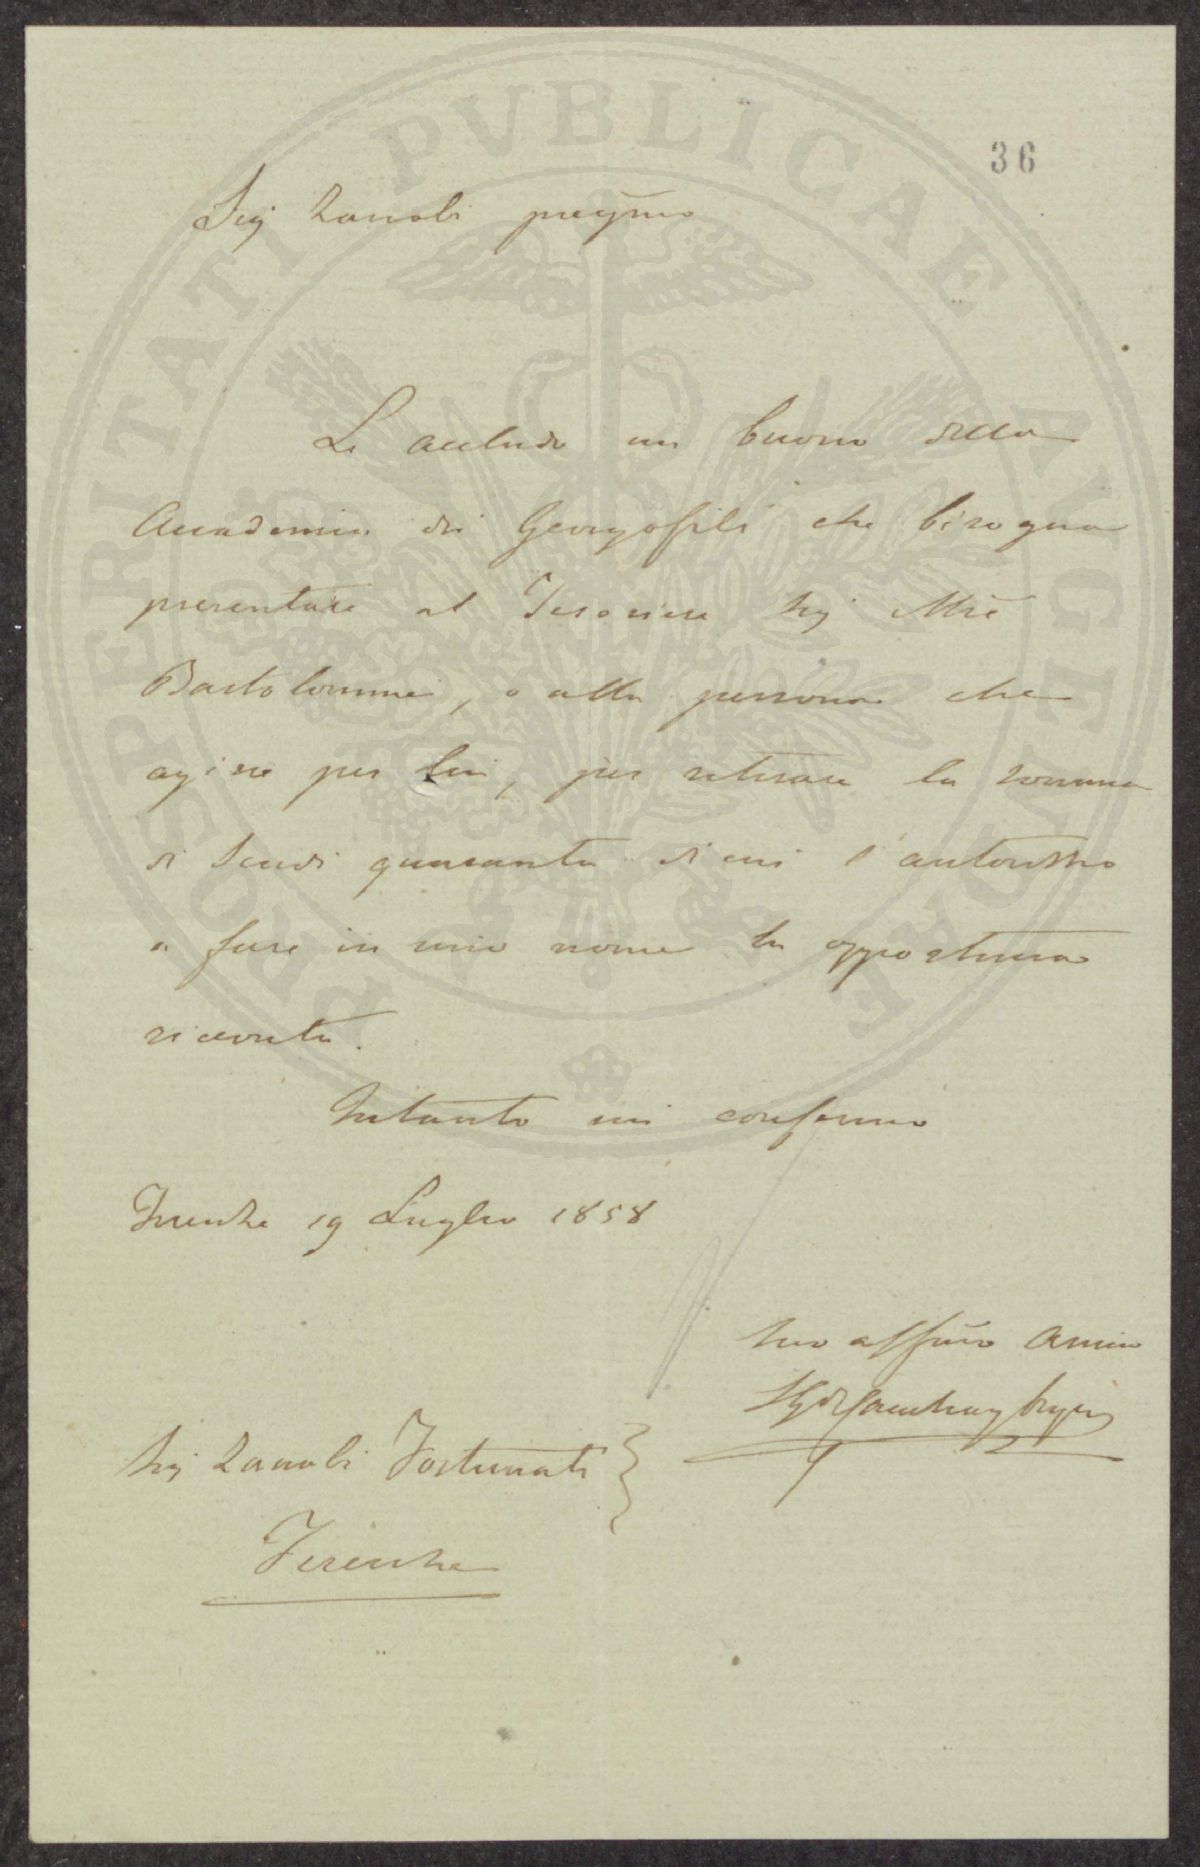 36
Sig Zanobi pregmo
Le accludo un buono della
Accademia dei Georgofili che bisogna
presentare al Tesoriere Sig Mse
Bartolommei, o alla persona che
agisce per lui, per ritirare la somma
di Scudi quaranta di cui l'autorizzo
a fare in mio nome la opportuna
ricevuta.
Intanto mi confermo
Firenze 19 Luglio 1858
Suo affmo Amico
Sig Zanobi Fortunati
Firenze
PROSPERITATI PVBLICAE AVGENDAE